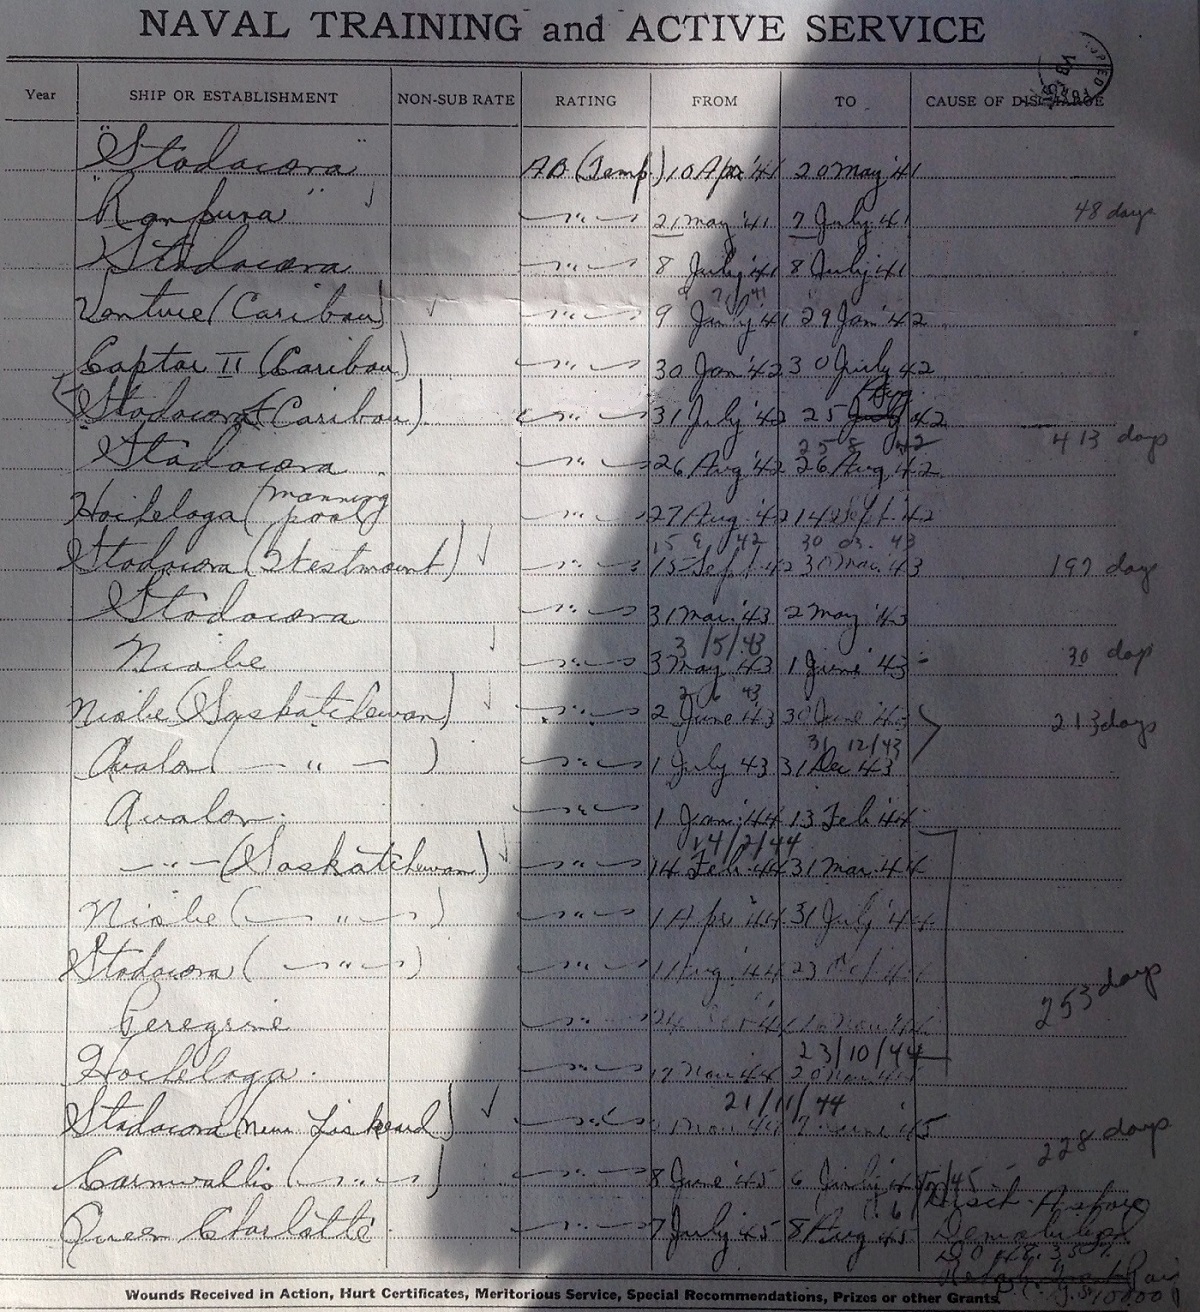 NAVAL TRAINING and ACTIVE SERVICE
Year SHIP OR ESTABLISHMENT NON-SUB RATE RATING FROM TO CAUSE OF DISCHARGE
"Stadacona" AB (Temp) 10 Apr '41 20 May '41
"Ranpura" —"— 21 May '41 7 July '41 48 days
Stadacona —"— 8 July '41 8 July '41
Venture (Caribou) —"— 9 July '41 29 Jan '42
Captor II (Caribou) —"— 30 Jan '42 30 July '42
Stadacona (Caribou) —"— 31 July '42 25 Aug '42 413 days
25 8 42
Stadacona —"— 26 Aug '42 26 Aug '42
Hochelaga (manning pool) —"— 27 Aug '42 14 Sept '42
15 9 42 30 03 43
Stadacona (Westmount) —"— 15 Sept 42 30 Mar '43 197 days
Stadacona —"— 31 Mar '43 2 May '43
3/5/43
Niobe —"— 3 May '43 1 June '43 30 days
2 6 43
Niobe (Saskatchewan) —"— 2 June '43 30 June '43 213 days
31/12/43
Avalon (—"—) —"— 1 July 43 31 Dec 43
Avalon —"— 1 Jan '44 13 Feb '44
14/2/44
—"— (Saskatchewan) —"— 14 Feb '44 31 Mar '44
Niobe (—"—) —"— 1 Apr '44 31 July '44
Stadacona (—"—) —"— 1 Aug '44 23 253 days
Peregrine —"—
23/10/44
Hochelaga —"— 17 Nov 44 20 Nov 44
21/11/44
Stadacona (New Liskeard) —"— Nov 44 7 June '45 228 days
Cornwallis (—"—) —"— 8 June '45 6 July '45
Queen Charlotte —"— 7 July '45 8 Aug '45 Disch. Ashore
Demobilized
Wounds Received in Action, Hurt Certificates, Meritorious Service, Special Recommendations, Prizes or other Grants